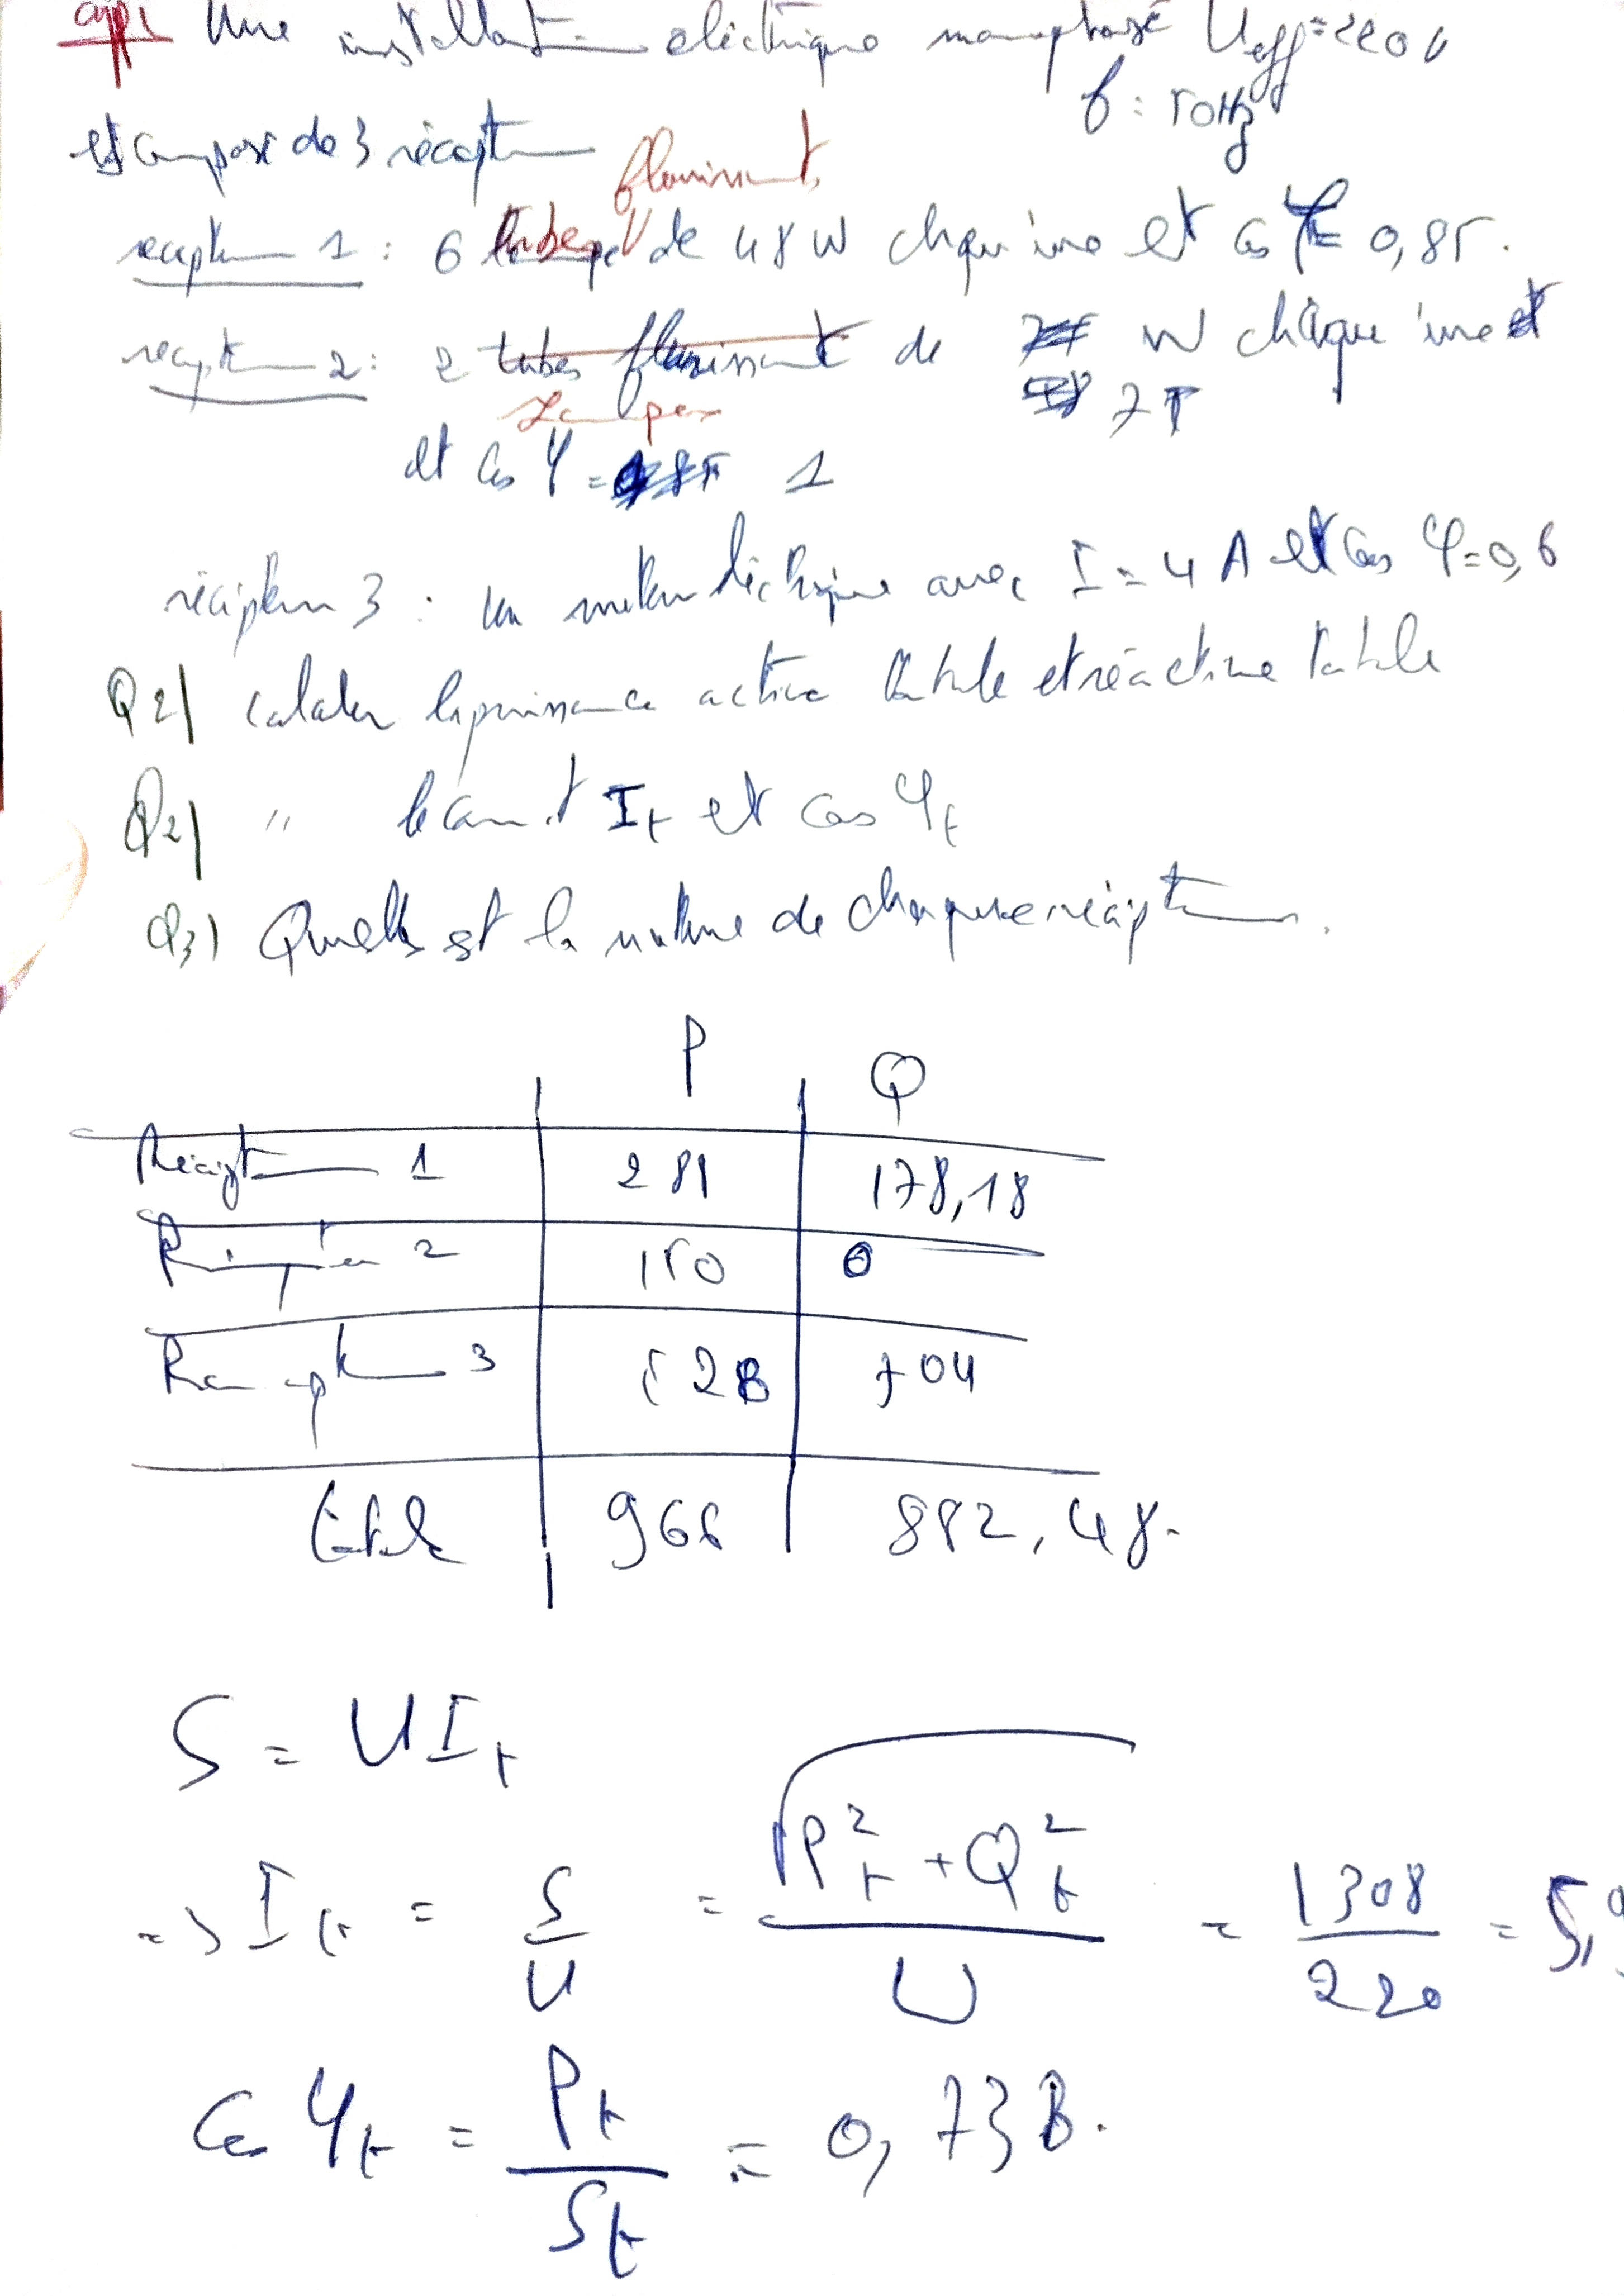 Une installation électrique monophasé Ueff = 220 V
f : 50Hz
est composé de 3 récepteur
fluorissant
recepteur 1 : 6 tubes de 48 W chaqu'une et cos φ = 0,85.
recepteur 2 : 2 tubes fluorissant de W chaque 'une et
Lampes 75
et cos φ = 1
récepteur 3 : un moteur électrique avec I = 4 A et cos φ = 0,6
Q1) calculer la puissance active totale et réactive totale
Q2) " le courant It et cos φt
Q3) Quelle est la nature de chaque récepteur.
P Q
Récepteur 1 288 178,18
Récepteur 2 150 0
Recepteur 3 528 704
totale 966 882,48.
S = U It
=> It = S/U = √(Pt² + Qt²)/U = 1308/220 = 5,9
Cos φt = Pt/St = 0,738.